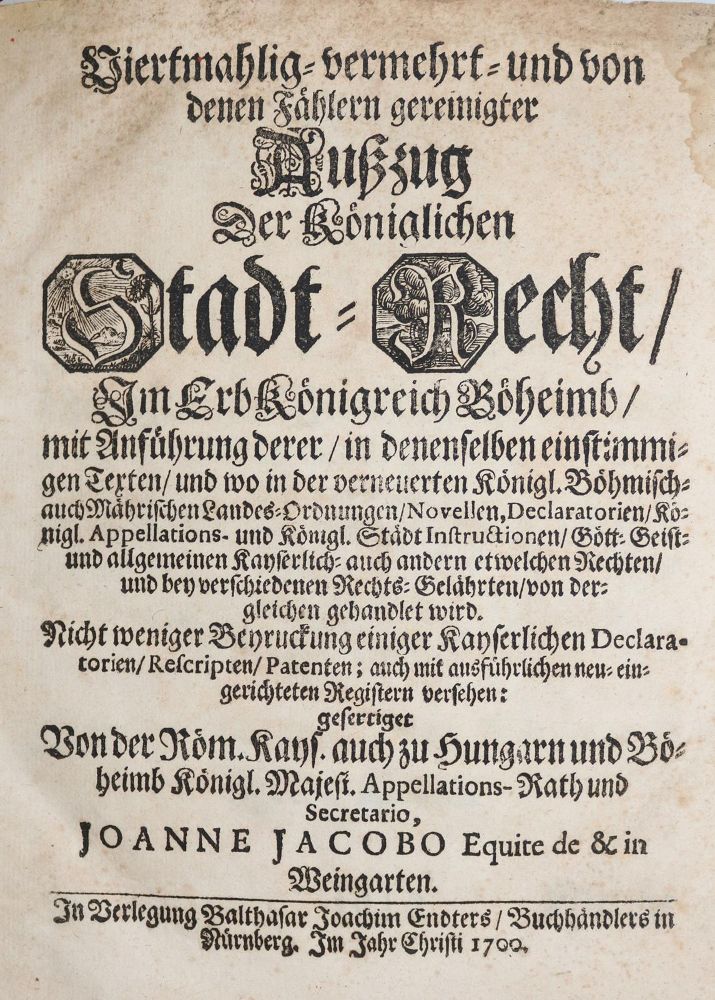 Viertmahlig-vermehrt-und von
denen Fählern gereinigter
Außzug
Der Königlichen
Stadt-Recht/
Im ErbKönigreich Böheimb/
mit Anführung derer/in denenselben einstimmi-
gen Texten/und wo in der verneuerten Königl. Böhmisch-
auch Mährischen Landes-Ordnungen/Novellen, Declaratorien/Kö-
nigl. Appellations- und Königl. Städt Instructionen/Gött-Geist-
und allgemeinen Kayserlich-auch andern etwelchen Rechten/
und bey verschiedenen Rechts-Gelährten/von der-
gleichen gehandlet wird.
Nicht weniger Beyruckung einiger Kayserlichen Declara-
torien/Rescripten/Patenten; auch mit ausführlichen neu-ein-
gerichteten Registern versehen:
gefertiget
Von der Röm. Kays. auch zu Hungarn und Bö-
heimb Königl. Majest. Appellations-Rath und
Secretario,
JOANNE JACOBO Equite de & in
Weingarten.
In Verlegung Balthasar Joachim Endters/Buchhändlers in
Nürnberg. Im Jahr Christi 1700.